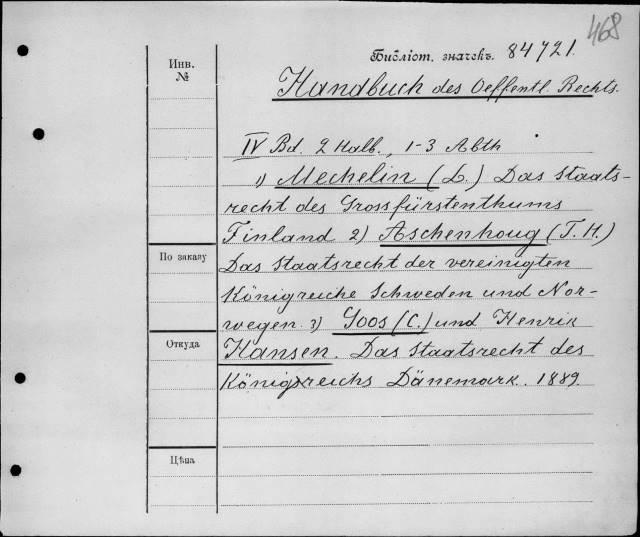 468
Библіот. значекъ. 84721.
Инв.
№
Handbuch des Oeffentl. Rechts.
IV Bd. 2 Halb., 1-3 Abth
1) Mechelin (L.) Das Staats-
recht des Grossfürstenthums
Finland 2) Aschenhoug (T. H.)
По заказу
Das Staatsrecht der vereinigten
Königreiche Schweden und Nor-
wegen. 3) Goos (C.) und Henrik
Откуда
Hansen. Das Staatsrecht des
Königreichs Dänemark. 1889.
Цѣна